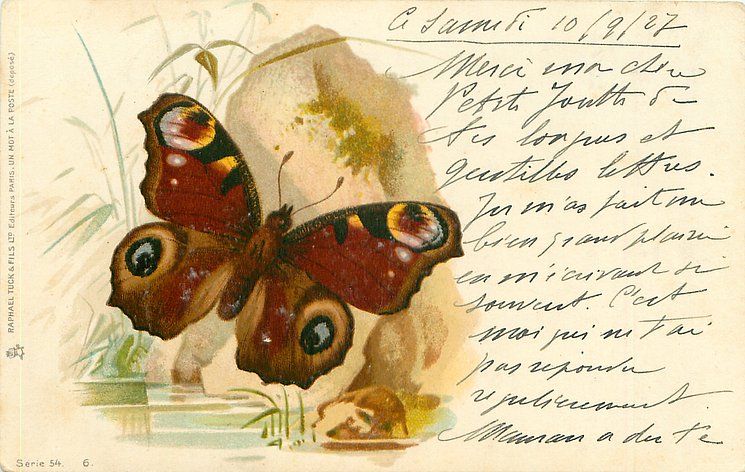 Ce Samedi 10/9/27
Merci mon cher
Petit de
tes longues et
gentilles lettres.
Tu m'as fait un
bien grand plaisir
en m'écrivant si
souvent. C'est
moi qui ne t'ai
pas répondu
régulièrement.
Maman a du te
RAPHAEL TUCK & FILS LTD Editeurs PARIS. UN MOT À LA POSTE (déposé)
Série 54. 6.